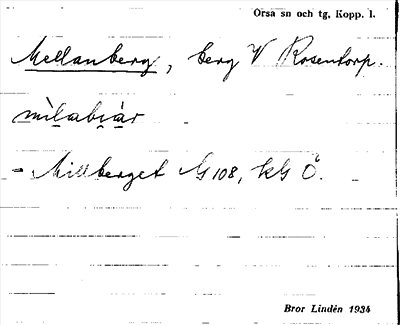 Orsa sn och tg, Kopp. l.
Mellanberg, berg V Rosentorp.
mìlabjàr
- Millberget G 108, kG Ö.
Bror Lindén 1934